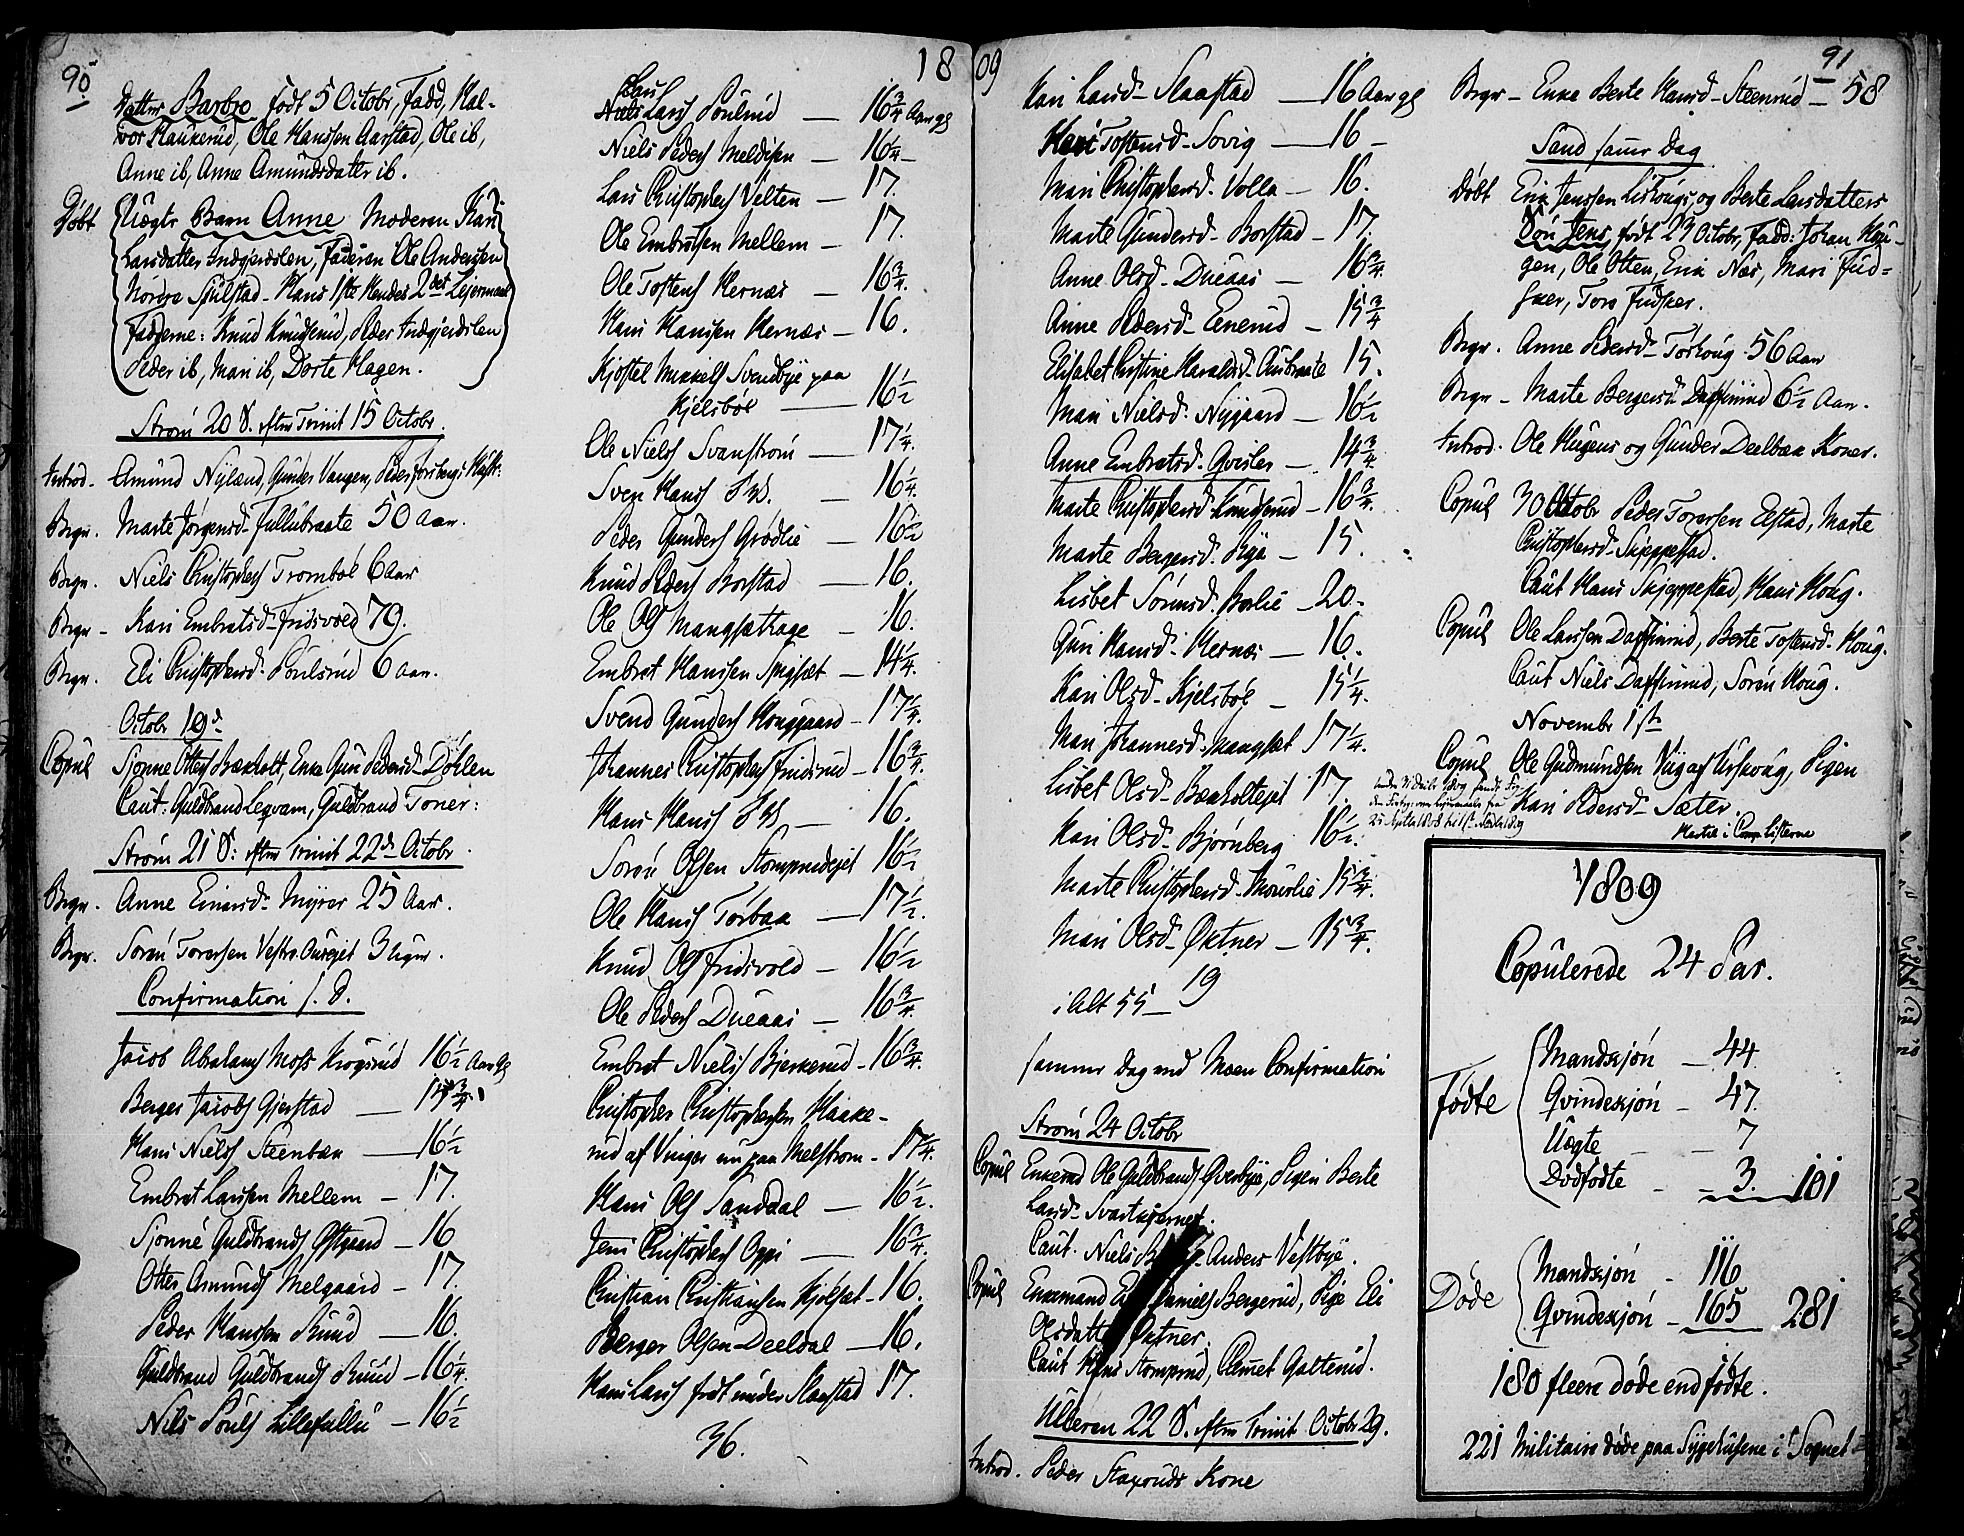 90
1809
91
Datter Barbro født 5 Octobr, Fadd, Hal-
vor Haukerud, Ole Hanssen Aarstad, Ole ib,
Anne ib, Anne Amundsdatter ib.
Døbt Uægte Barn Anne Moderen Kari
Larsdatter Indgjerdslen, Faderen Ole Andersen
Nordre Spülstad - Hans 1ste Hendes 2det Lejermaal
Fadderne: Knud Knudserud, Peder Indgjerdslen
Peder ib, Mari ib, Dorte Hagen.
Strøm 20 S. efter Trinit 15 Octobr.
Introd. Amund Nyland, Gunder Vangen, Peder Forsbergs
Begr. Marte Jørgensd. Fullubraate 50 Aar.
Begr. Niels Christophers Trombøl 6 Aar
Begr. Kari Embretsd. Fridsvold 79.
Begr. Eli Christophersd. Poulsrud 6 Aar.
Octobr 19d
Copul Sjønne Otters Bækholt, Enke Guri Pedersd. Dollen
Caut: Guldbrand Leqvam, Guldbrand Toner:
Strøm 21 S: efter Trinit 22d Octobr.
Begr. Anne Einersd. Myrer 25 Aar.
Begr. Søren Torersen Vestre Ousejet 3 Uger.
Confirmation s. D.
Jacob Abrahams Moss Krogsrud 16½ Aar gl
Berger Jacobs Gjerstad 15¾
Hans Niels Steenbæk 16½
Embret Larssen Mellem 17.
Sjønne Guldbrands Østgaard 16
Otter Amunds Melgaard 17.
Peder Hanssen Ruud 16.
Guldbrand Guldbrands Ruud 16¼.
Nils Pouls Lillefullu 16½
Lars
Lars Poulsrud 16¾ Aar gl
Niels Peders Meldisen 16¼
Lars Christophers Velten 17.
Ole Embretsen Mellem 17.
Ole Tostens Hernæs 16¾.
Hans Hanssen Hernæs 16.
Kjøstel Mikkels Svendbye paa
Kjelsbøl 16½
Ole Niels Svanstrøm 17¼.
Svend Hans 16¼.
Peder Gunders Grødlie 16½
Knud Peders Borstad 16.
Ole Ols Mangsethage 16.
Embret Hanssen Spigset 14¼.
Svend Gunders Houggaard 17¼.
Johannes Christophers Fridsrud 16¾.
Hans Hans 16.
Søren Olsen Stomprudejet 16½
Ole Hans Torbaa 17½.
Knud Ols Fridsvold 16½
Ole Peders Dueaas 16¾.
Embret Niels Bjerkerud 16¾.
Christopher Christophersen Haake-
rud af Vinger nu paa Melstrøm 17¼.
Hans Ols Sanddal 16½.
Jens Christophers Oppi 16¾.
Christian Christiansen Kjølset 16.
Berger Olsen Deeldal 16.
Hans Lars født under Slaastad 17.
36.
Kari Larsd. Slaastad 16 Aar gl
Kari Tostensd. Sovig 16
Mari Christophersd. Volla 16.
Marte Gundersd. Borstad 17.
Anne Olsd. Dueaas 16¾.
Anne Pedersd. Eenerud 15¾
Elisabet Kirstine Haraldsd. Ousbraate 15.
Mari Nielsd. Nygaard 16½
Anne Embretsd. Qvisler 14¾.
Marte Christophersd. Knudserud 16¾.
Marte Bergersd. Rye 15.
Lisbet Sørensd. Borlie 20.
Guri Hansd. Hernæs 16.
Kari Olsd. Kjelsbøl 15¼.
Mari Johannesd. Mangset 17¼.
Lisbet Olsd. Bækholtejet 17.
Kari Olsd. Bjørnberg 16½.
Marte Christophersd. Mourlie 15¾.
Mari Olsd. Øktner 15¾.
19
i Alt 55
samme Dag ved Moen Confirmation
Strøm 24 Octobr
Copul Enkemd Ole Guldbrands Overbye, Pigen Berte
Larsd. Svartkjernet.
Caut. Niels Anders Vestbye.
Copul Enkemand Daniels Bergerud, Pige Eli
Olsdatter Øktner.
Caut Hans Stomprud, Clemet Galterud.
Ulleren 22 S. efter Trinit Octobr 29.
Introd. Peder Staxruds Kone
Begr - Enke Berte Hansd. Steenrud 58
Sand samme Dag
Døbt Erik Jenssen Liskougs, og Berte Larsdatters
Søn Jens født 29 Octobr, Fadd: Johan Hau-
gen, Ole Otten, Erik Næs, Mari Fud-
sker, Tore Fudsker.
Begr. Anne Pedersd. Torkoug 56 Aar
Begr. Marte Bergersd. Daffinrud 6½ Aar.
Introd. Ole Haugens og Gunder Deelbæk Koner.
Copul 30 Octobr Peder Torersen Elstad, Marte
Christophersd. Skjeppestad.
Caut Hans Skjeppestad, Hans Houg.
Copul Ole Larssen Daffinrud, Berte Tostensd. Houg.
Caut Niels Daffinrud, Søren Houg.
Novembr 1ste
Copul Ole Gudmundsen Viig af Urskoug, Pigen
Kari Pedersd. Sæter.
1809
Copulerede 24 Par.
Fødte Mandkjøn 44
Qvindekjøn 47.
Uægte 7
Dødfødte 3. 101
Døde Mandkjøn 116
Qvindekjøn 165 281
180 fleere døde end fødte.
221 Militaire døde paa Sygehusene i Sognet